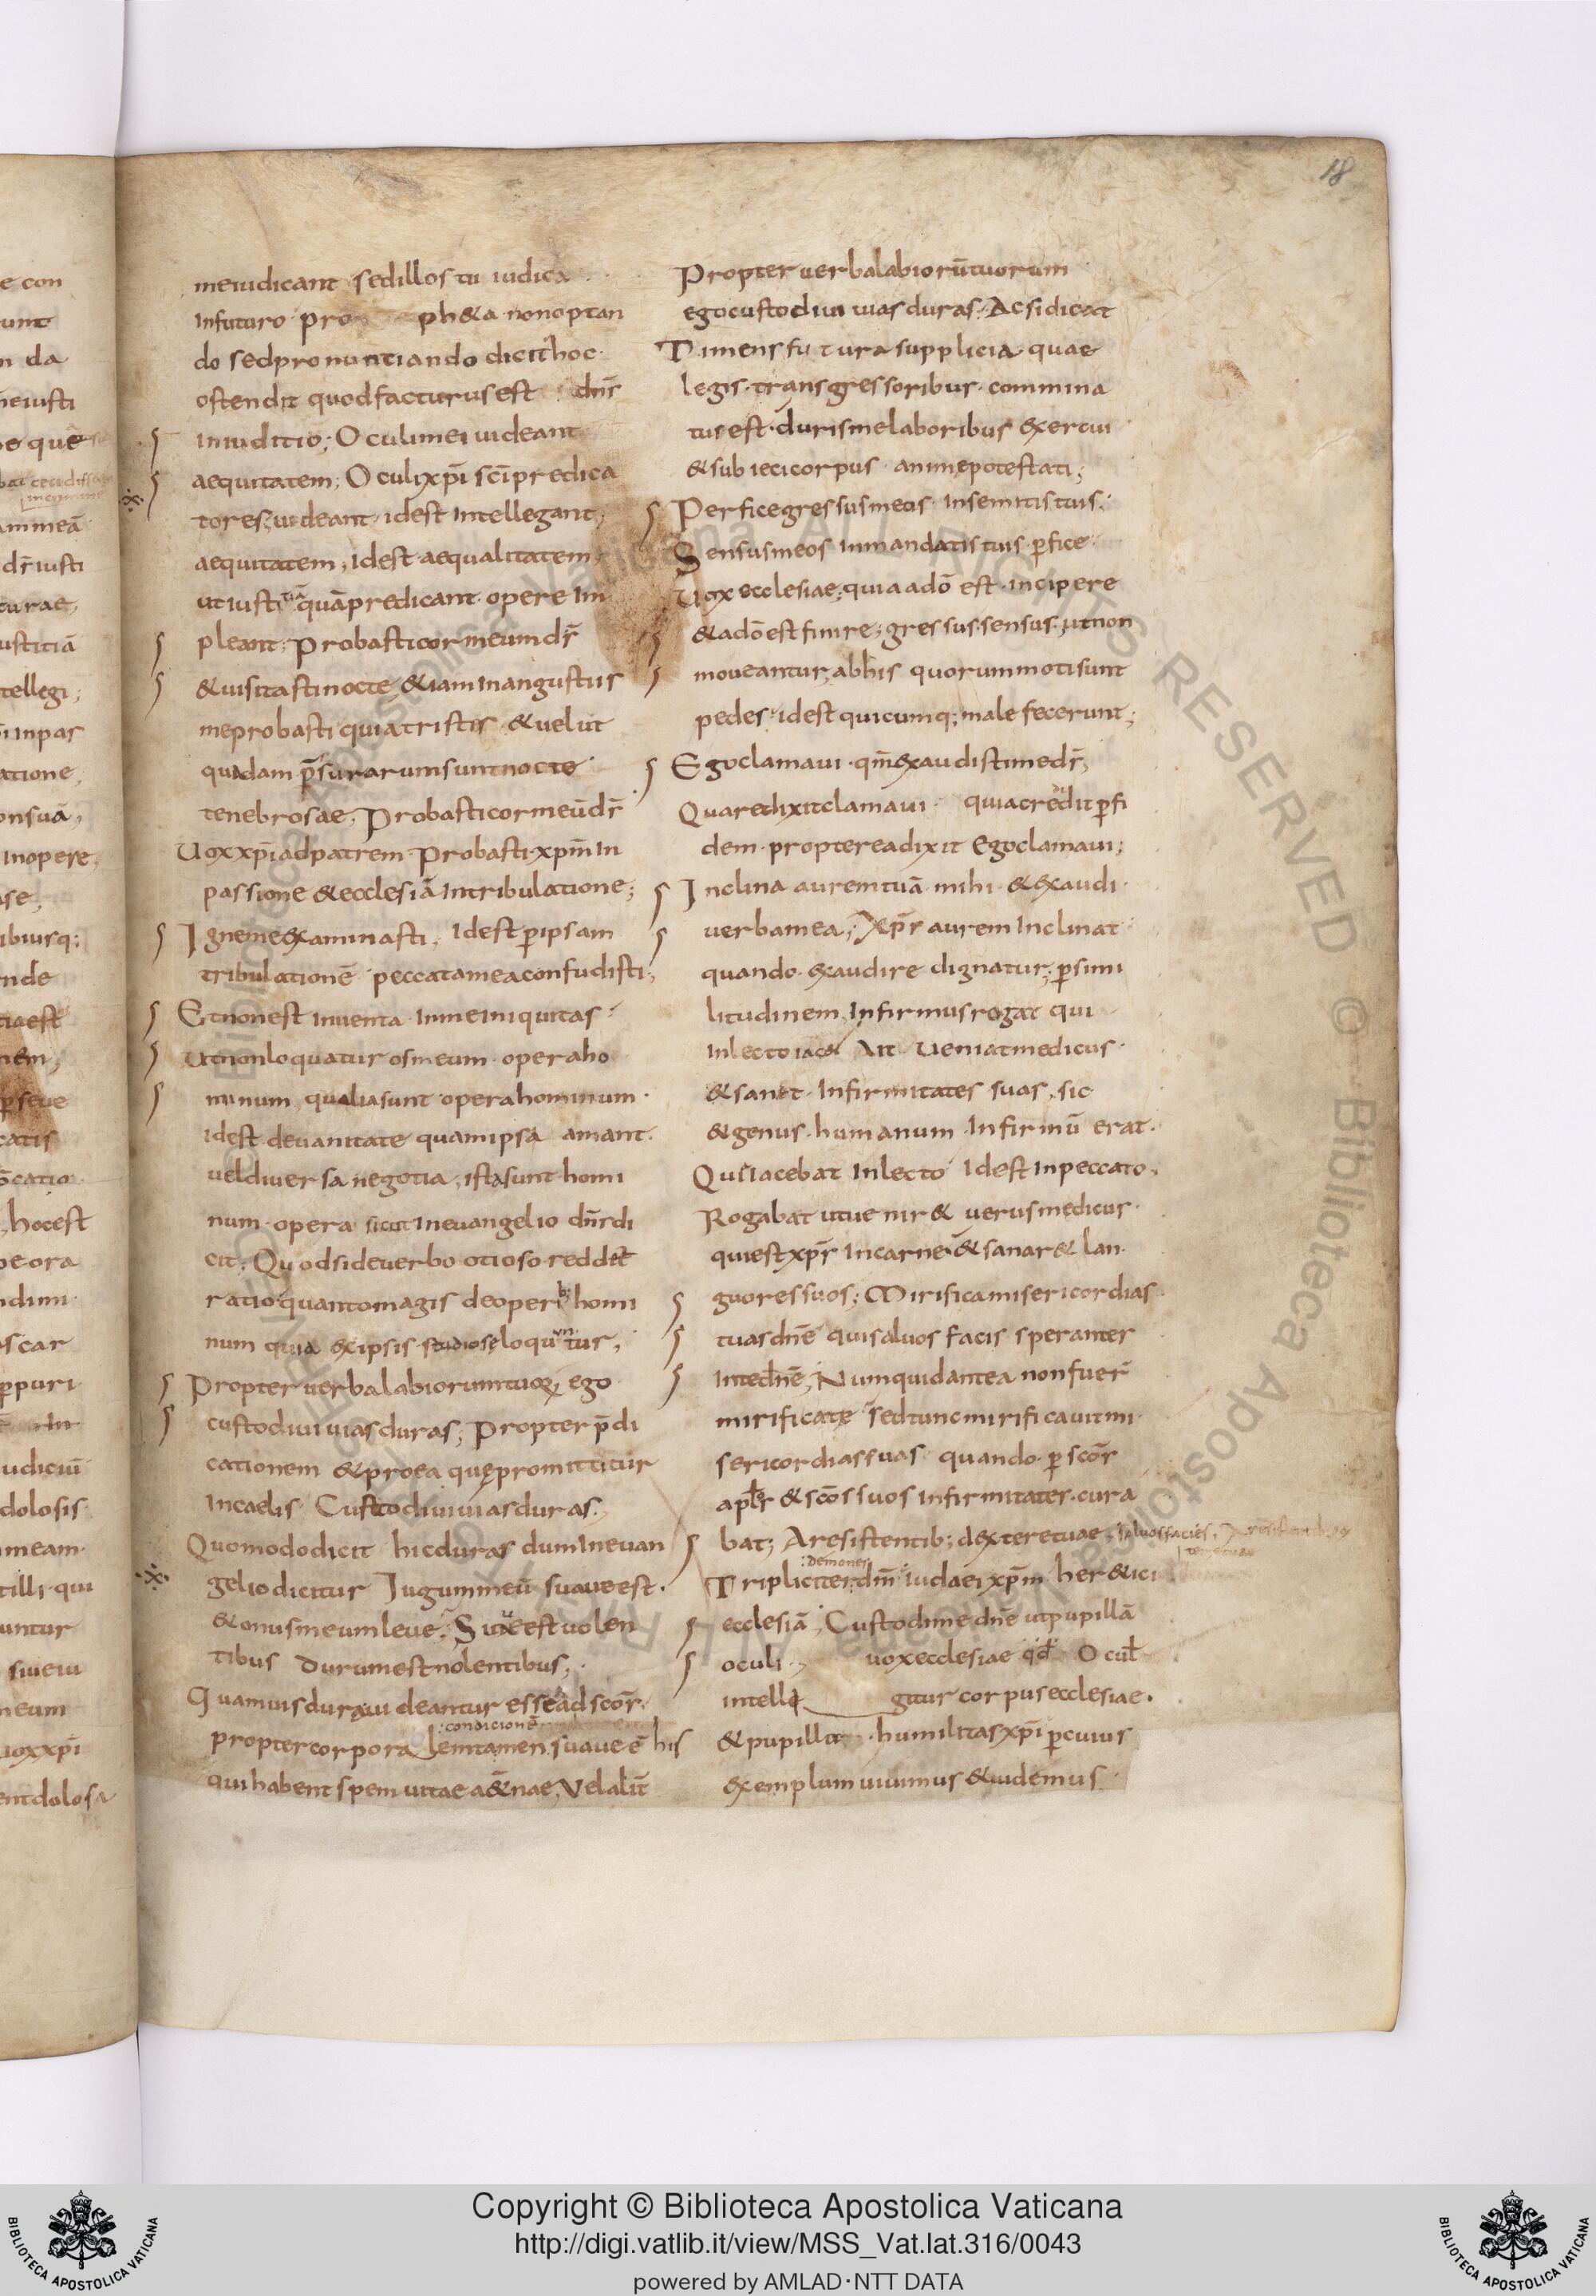 18
meiudicant sedillos tu iudica
Infuturo pro ph&a nonoptan
do sedpronuntiando dicit hoc
ostendit quodfacturusest dn̄s
Iniuditio; Oculimei uideant
aequitatem; Oculixp̄i sc̄i predica
tores, uideant, idest Intellegant,
aequitatem, idest aequalitatem,
ut iustitiā quāpredicant opere Im
pleant; Probasticormeum dr̄
&uisitastinocte, &iam Inangustiis
meprobasti quiatristis &uelut
quadam p̄surarum sunt nocte
tenebrosae, Probasticormeūdr̄
Uox xp̄iadpatrem Probasti xp̄m In
passione &ecclesiā Intribulatione;
Ignemeexaminasti, Idest p̄ipsam
tribulationē peccatameaconfudisti,
Etnonest Inuenta Inmeiniquitas
Utnonloquatur osmeum operaho
minum, qualiasunt operahominum
idest deuanitate quamipsā amant.
ueldiuersa negotia, istasunt homi
num opera sicut Ineuangelio dn̄s di
cit; Quodsideuerbo otioso reddet
ratio quantomagis deoperib; homi
num quia exipsis studiose loquuntur,
Propter uerbalabiorumtuoꝝ, ego
custodiui uiasduras, Propter p̄di
cationem &proea quępromittitur
Incaelis Custodiuiuiasduras,
Quomodo dicit hicduras dumIneuan
gelio dicitur Iugummeū suaueest.
&onusmeumleue. Suaueestuolen
tibus durumestnolentibus,
Quamuis dura uideantur esse adscōs.
condicionē
proptercorpora lenitamen suaue ē his
quihabentspem uitae a&̄nae, Velalit̄
Propter uerbalabiorūtuorum
egocustodiui uias duras. Acsidicat
Timens futura supplicia quae
legis transgressoribus commina
tus est. durismelaboribus exercui
&subiecicorpus animępotestati;
Perficegressusmeos Insemitistuis.
Sensusmeos Inmandatistuis p̄fice
Uox ecclesiae; quia adō est incipere
&adōestfinire; gressus. sensus. utnon
moueantur, abhis quorum moti sunt
pedes idest quicumq; male fecerunt;
Egoclamaui qm̄exaudistimedr̄,
Quaredixit clamaui quiacredit p̄fi
dem proptereadixit Egoclamaui;
Inclina auremtuā mihi &exaudi
uerbamea, Xp̄s aurem Inclinat
quando exaudire dignatur, p̄simi
litudinem Infirmusrogat qui
Inlecto iac& Ait ueniatmedicus
&san&. Infirmitates suas, sic
&genus humanum Infirmū erat.
Quiiacebat Inlecto Idest Inpeccato,
Rogabat utuenir& uerusmedicus
quiestxp̄s Incarne &sanar& lan
guoressuos; Mirificamisericordias
tuasdn̄e quisaluos facis sperantes
Intedn̄e, Numquidantea nonfuer̄
mirificatę sedtuncmirificauitmi
sericordiassuas quando p̄ scōs
apl̄os &scōssuos Infirmitates cura
bat; Aresistentib; dexteretuae,
demones
Tripliciter dm̄ iudaei xp̄m her&ici
ecclesiā, Custodimedn̄e utpupillā
oculi uoxecclesiae qd̄ Ocul̄
intelle gitur corpusecclesiae.
&pupilla humilitasxp̄i p̄cuius
exemplum uiuimus &uidemus
Copyright © Biblioteca Apostolica Vaticana
http://digi.vatlib.it/view/MSS_Vat.lat.316/0043
powered by AMLAD·NTT DATA
BIBLIOTECA APOSTOLICA VATICANA
BIBLIOTECA APOSTOLICA VATICANA